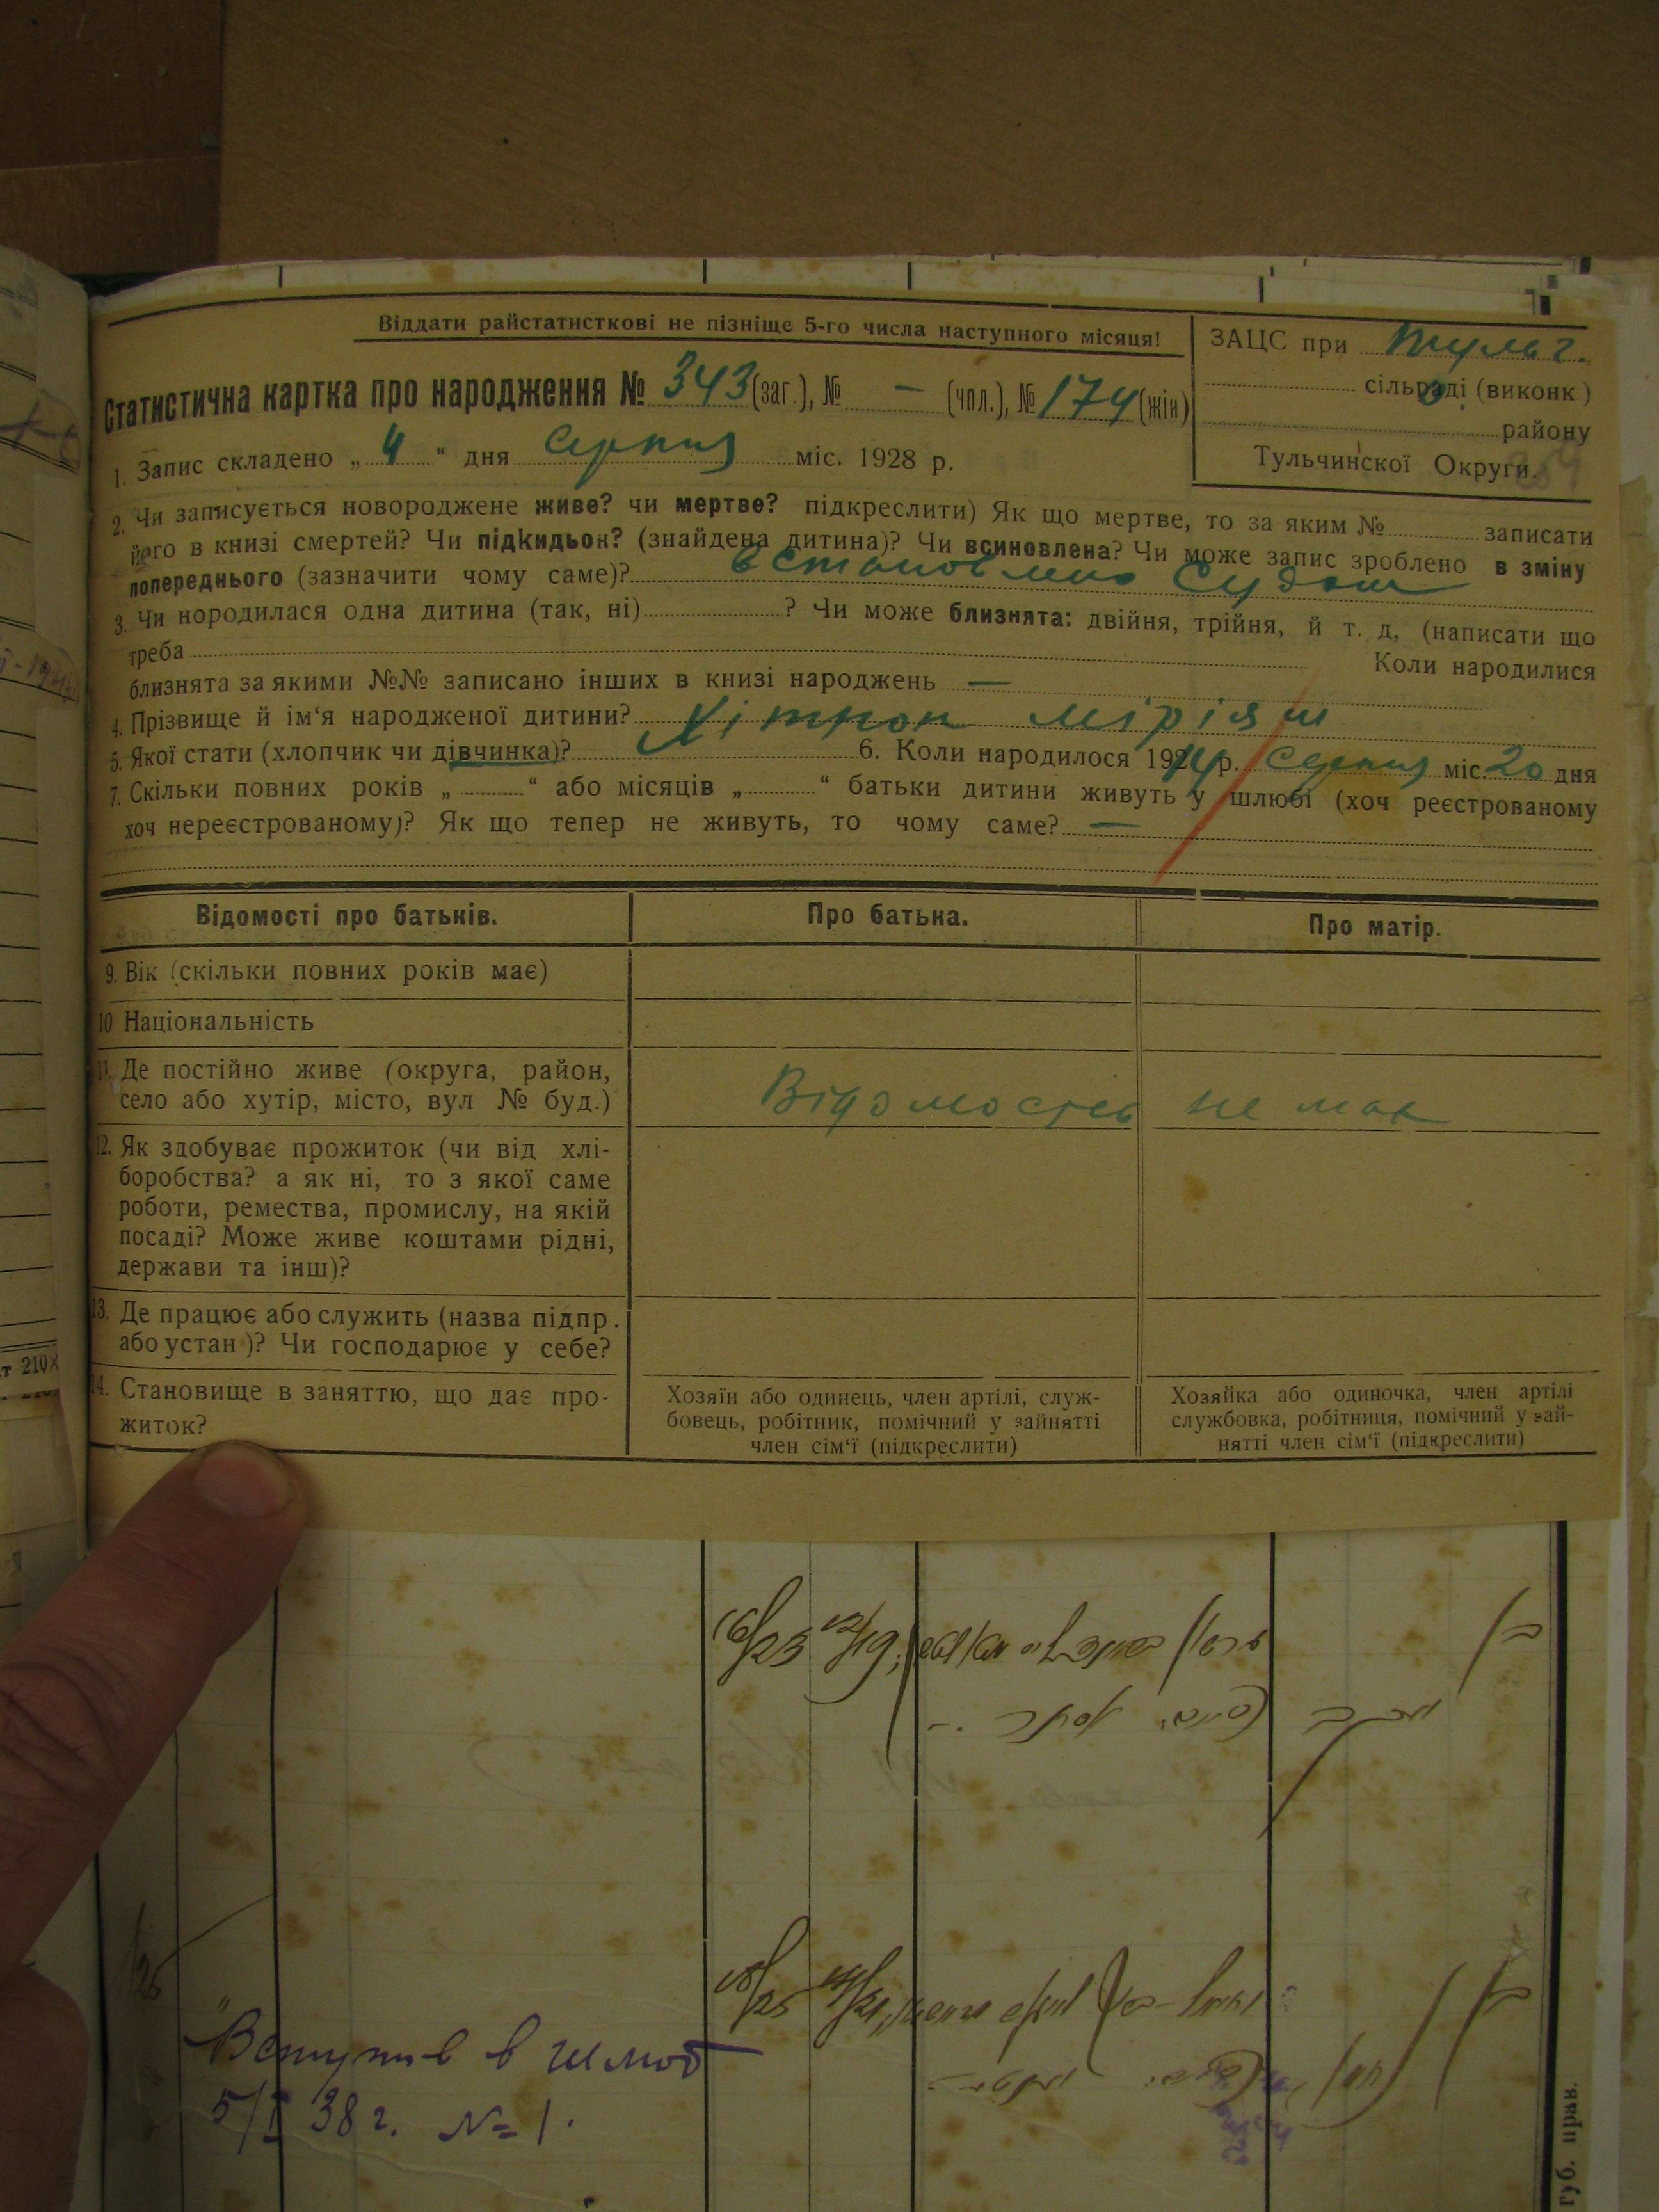 Віддати райстатисткові не пізніще 5-го числа наступного місяця!
ЗАЦС при Тульч.
сільраді (виконк.)
району
Тульчинскої Округи.
Статистична картка про народження № 343 (заг.), № — (чпл.), № 174 (жін)
1. Запис складено „4“ дня Серпня міс. 1928 р.
2. Чи записується новороджене живе? чи мертве? підкреслити) Як що мертве, то за яким № записати
його в книзі смертей? Чи підкидьон? (знайдена дитина)? Чи всиновлена? Чи може запис зроблено в зміну
попереднього (зазначити чому саме)? встановлено Судом
3. Чи нородилася одна дитина (так, ні) ? Чи може близнята: двійня, трійня, й т. д, (написати що
треба Коли народилися
близнята за якими №№ записано інших в книзі народжень —
4. Прізвище й ім‘я народженої дитини? Хітрон Міріям
5. Якої стати (хлопчик чи дівчинка)? 6. Коли народилося 192 р. Серпня міс. 20 дня
7. Скільки повних років „ “ або місяців „ “ батьки дитини живуть у шлюбі (хоч реєстрованому
хоч нереєстрованому)? Як що тепер не живуть, то чому саме? —
Відомості про батьків. Про батька. Про матір.
9. Вік (скільки повних років має)
10 Національність
11. Де постійно живе (округа, район,
село або хутір, місто, вул № буд.)
Відомостів не має
12. Як здобуває прожиток (чи від хлі-
боробства? а як ні, то з якої саме
роботи, ремества, промислу, на якій
посаді? Може живе коштами рідні,
держави та інш)?
13. Де працює або служить (назва підпр.
або устан)? Чи господарює у себе?
14. Становище в заняттю, що дає про-
житок?
Хозяїн або одинець, член артілі, служ-
бовець, робітник, помічний у зайнятті
член сім‘ї (підкреслити)
Хозяйка або одиночка, член артілі
службовка, робітниця, помічний у зай-
нятті член сім‘ї (підкреслити)
т 210X
Вступив в шлюб
5/I 38 г. № 1.
губ. прав.